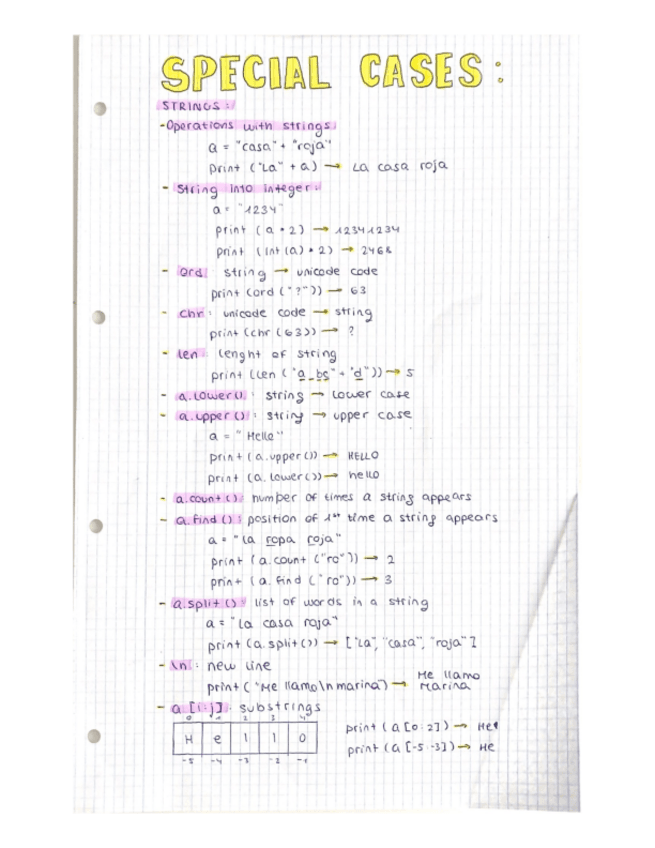 SPECIAL CASES:
STRINGS:
- Operations with strings:
a = "casa" + "roja"
print ("La" + a) → La casa roja
- String into integer:
a = "1234"
print (a * 2) → 12341234
print (int (a) * 2) → 2468
- Ord: string → unicode code
print (ord ("?")) → 63
- Chr: unicode code → string
print (chr (63)) → ?
- len: lenght of string
print (len ("a_bc" + "d")) → 5
- a.lower(): string → lower case
- a.upper(): string → upper case
a = "Hello"
print (a.upper()) → HELLO
print (a.lower()) → hello
- a.count(): number of times a string appears
- a.find(): position of 1st time a string appears
a = "la ropa roja"
print (a.count ("ro")) → 2
print (a.find ("ro")) → 3
- a.split(): list of words in a string
a = "La casa roja"
print (a.split()) → ["La", "casa", "roja"]
- \n: new line
print ("Me llamo\nmarina) → Me llamo
Marina
- a [i:j]: substrings
0 1 2 3 4
H e l l o
-5 -4 -3 -2 -1
print (a [0:2]) →
print (a [-5:-3]) → He